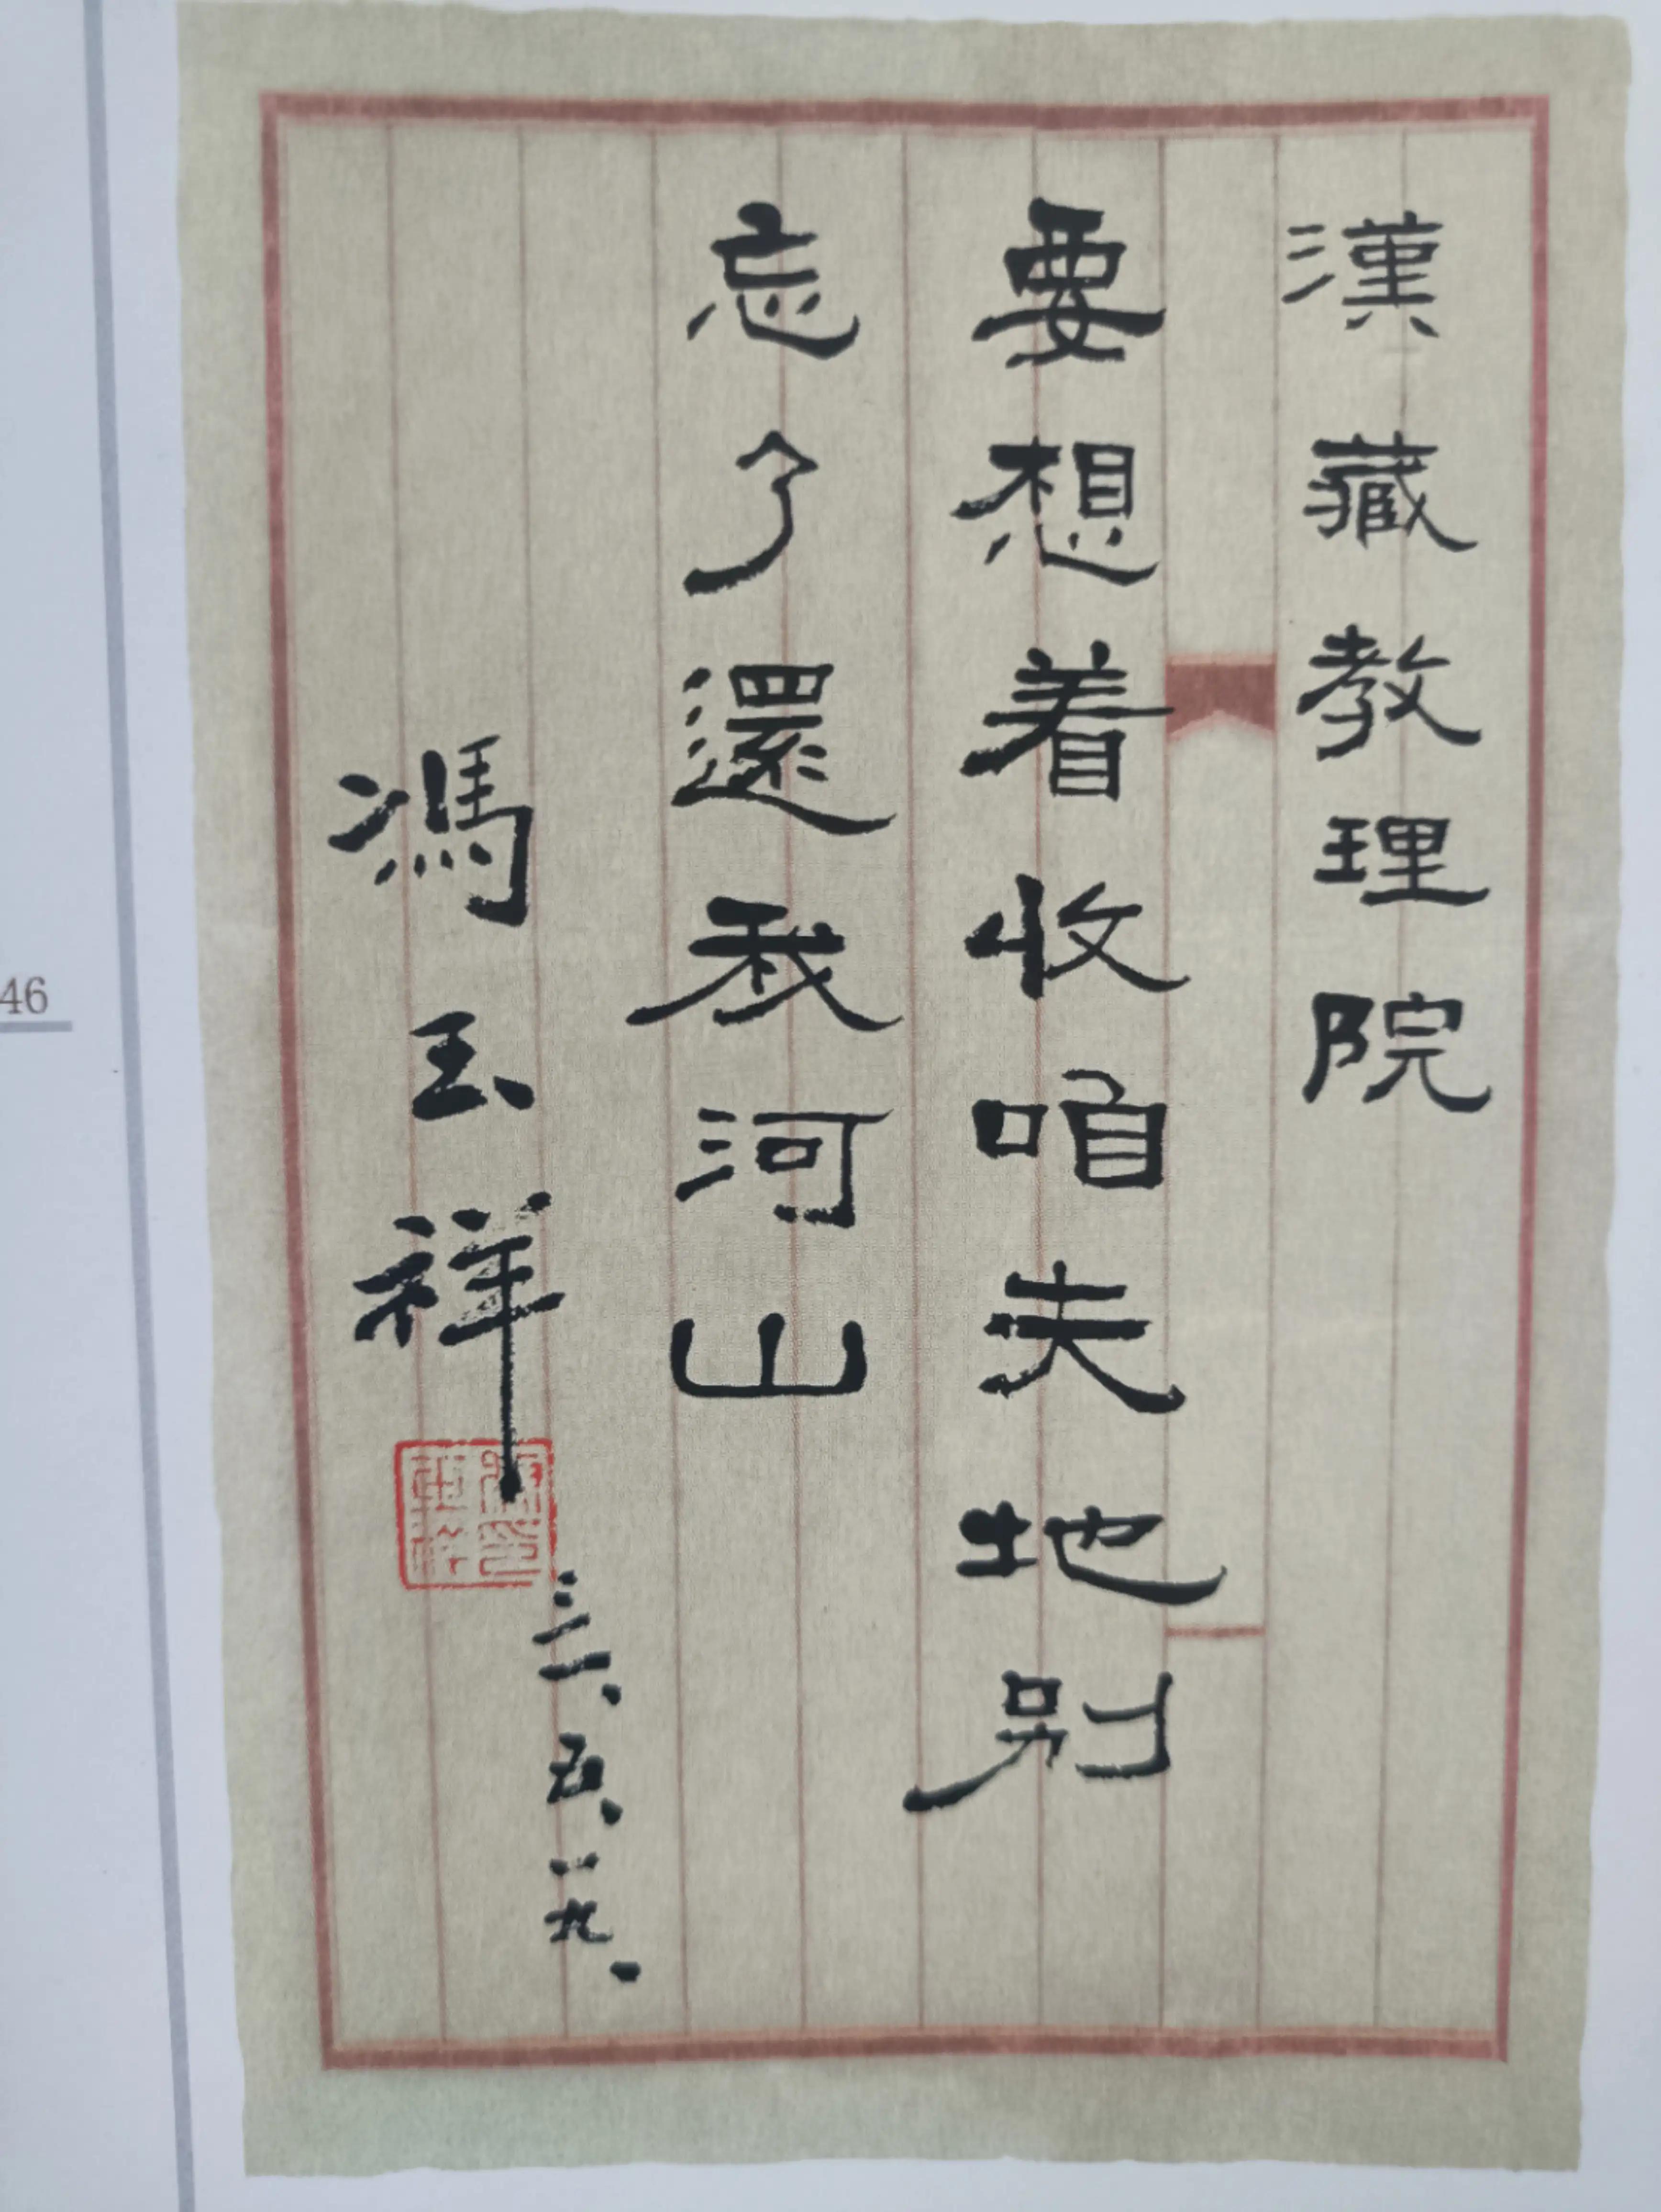 漢藏教理院
要想着收咱失地别
忘了還我河山
馮玉祥
馮印玉祥
三一、五、一九、
46